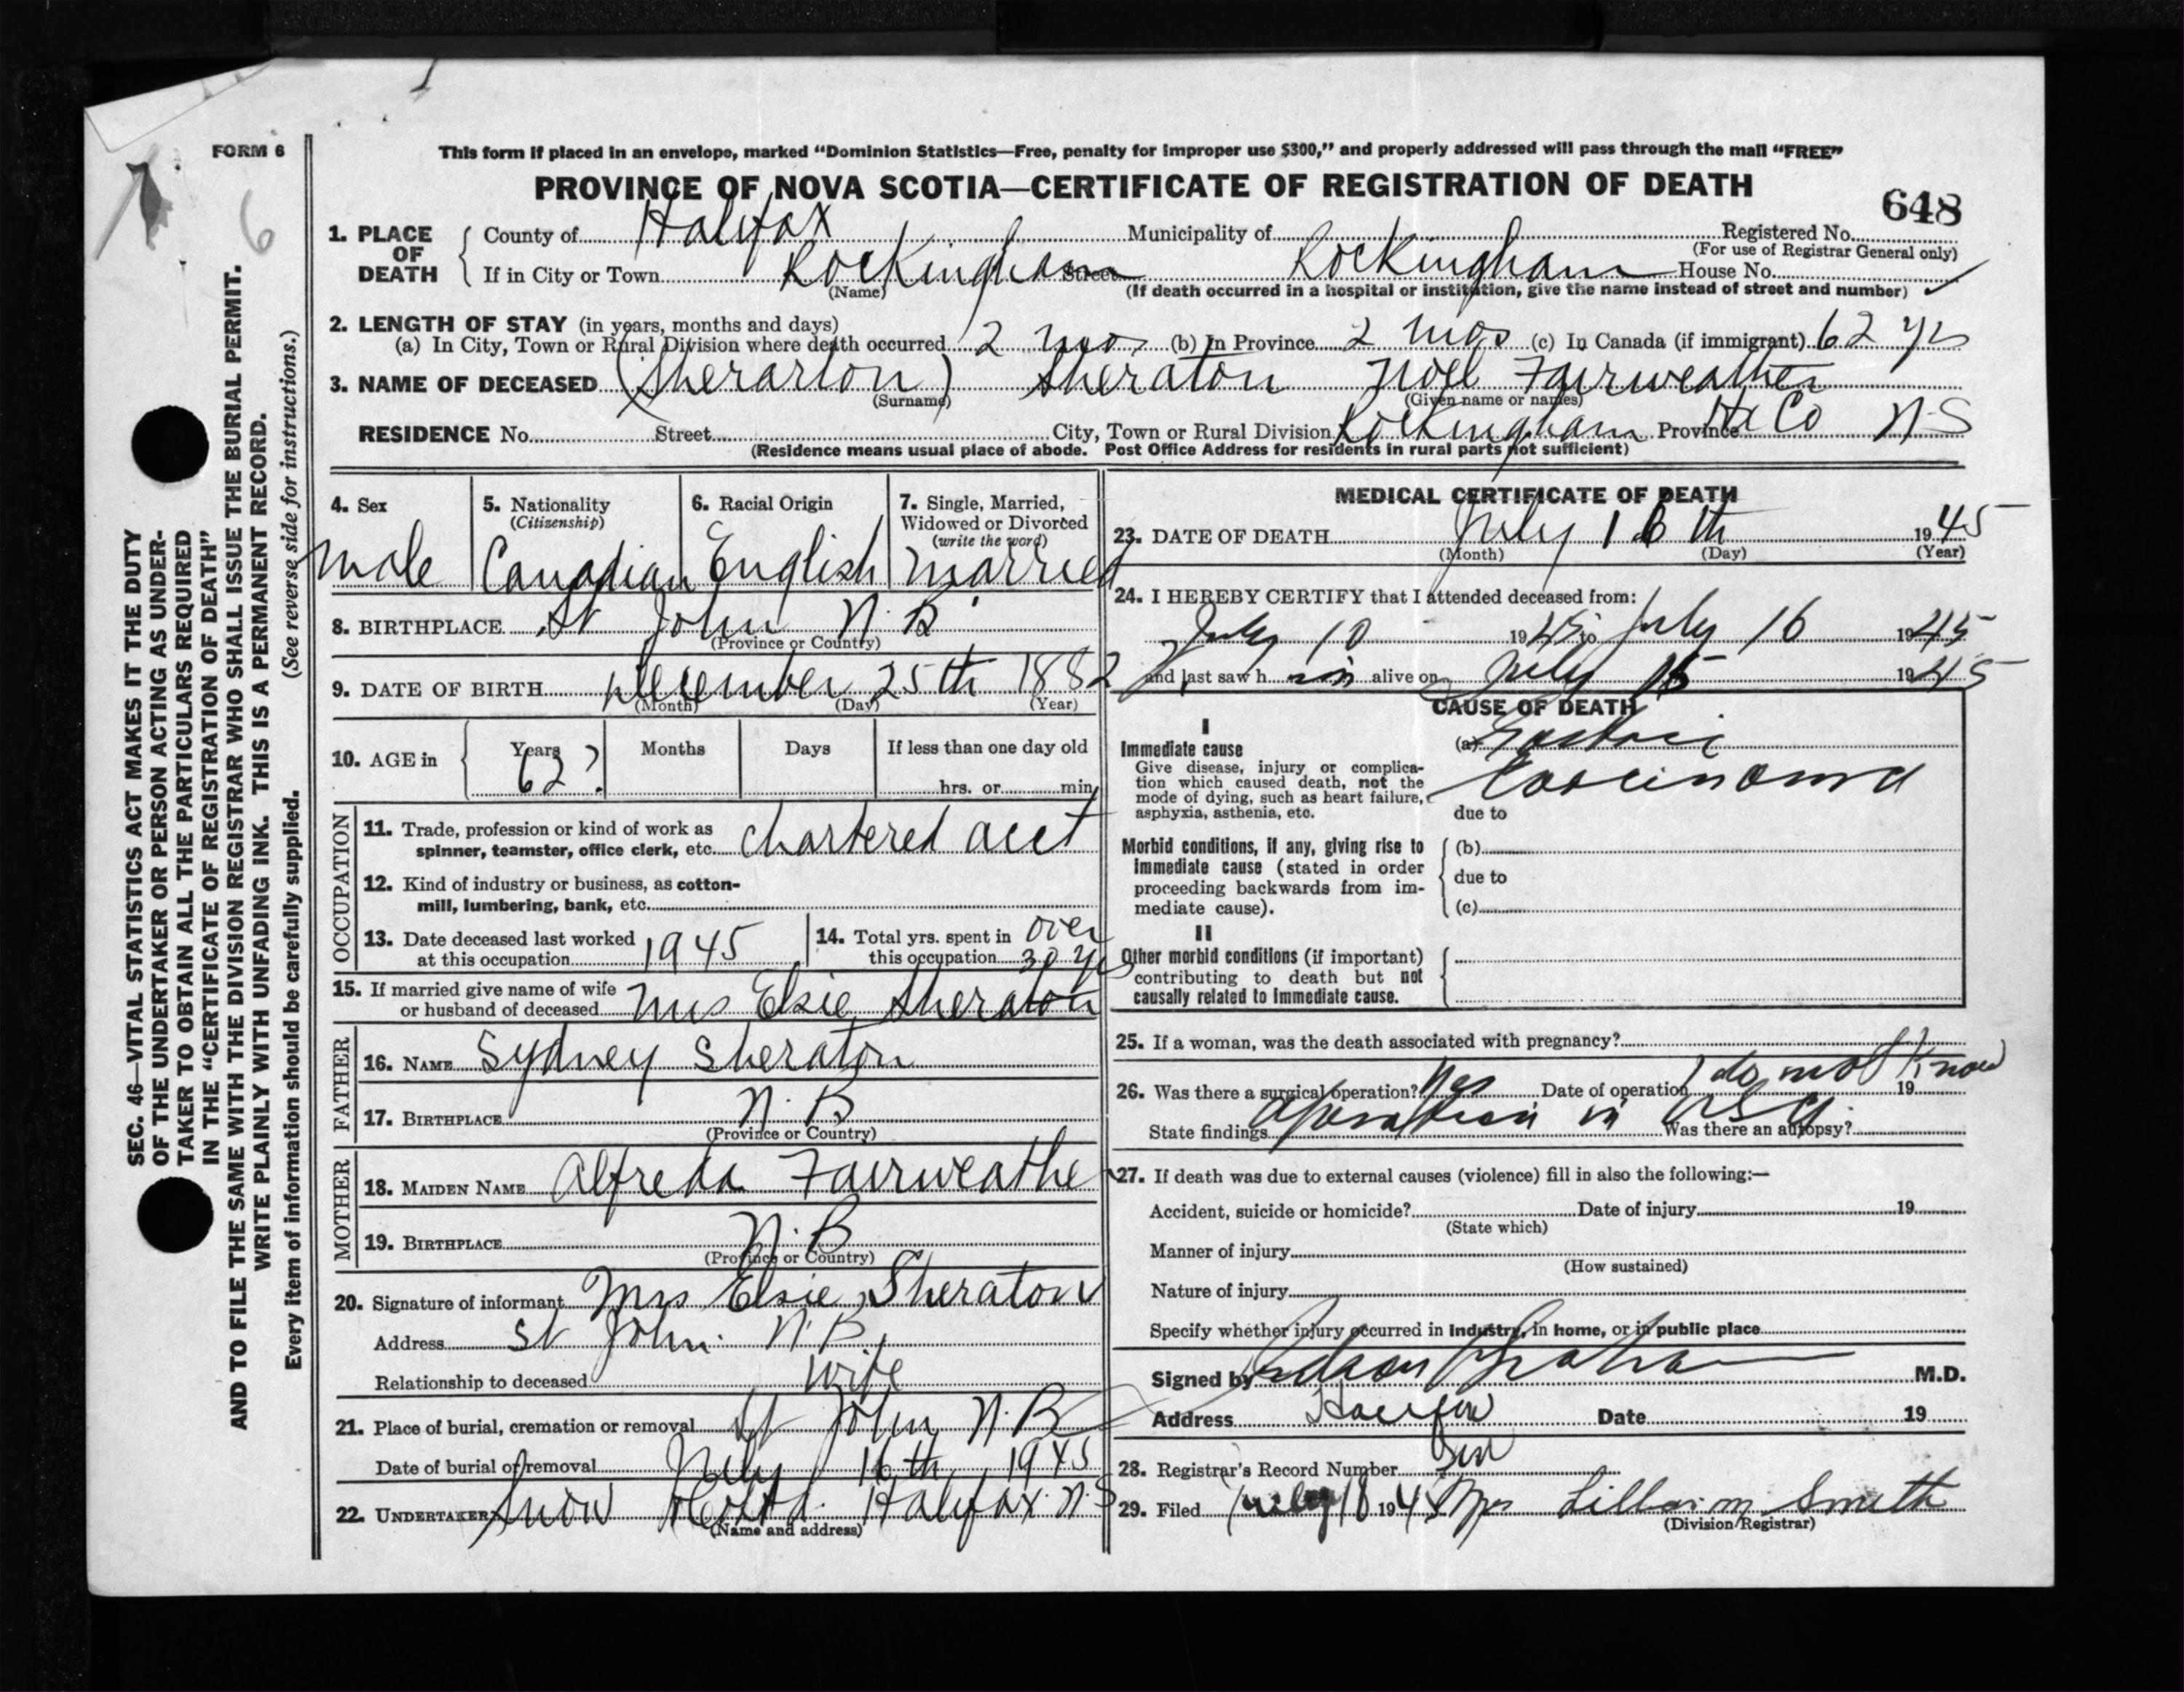 FORM 6
6
This form if placed in an envelope, marked “Dominion Statistics—Free, penalty for improper use $300,” and properly addressed will pass through the mail “FREE”
PROVINCE OF NOVA SCOTIA—CERTIFICATE OF REGISTRATION OF DEATH
648
1. PLACE OF DEATH County of Halifax Municipality of Registered No.
(For use of Registrar General only)
If in City or Town Rockingham Street Rockingham House No.
(Name) (If death occurred in a hospital or institution, give the name instead of street and number)
2. LENGTH OF STAY (in years, months and days)
(a) In City, Town or Rural Division where death occurred 2 mos (b) In Province 2 mos (c) In Canada (if immigrant) 62 yrs
3. NAME OF DECEASED (Sherarton) Sheraton Noel Fairweather
(Surname) (Given name or names)
RESIDENCE No. Street City, Town or Rural Division Rockingham Province Hx Co N-S
(Residence means usual place of abode. Post Office Address for residents in rural parts not sufficient)
4. Sex
male
5. Nationality
(Citizenship)
Canadian
6. Racial Origin
English
7. Single, Married,
Widowed or Divorced
(write the word)
married
8. BIRTHPLACE St John N. B
(Province or Country)
9. DATE OF BIRTH December 25th 1882
(Month) (Day) (Year)
10. AGE in Years Months Days If less than one day old
62? hrs. or min.
OCCUPATION
11. Trade, profession or kind of work as
spinner, teamster, office clerk, etc. chartered acct
12. Kind of industry or business, as cotton-
mill, lumbering, bank, etc.
13. Date deceased last worked
at this occupation 1945
14. Total yrs. spent in over
this occupation 30 yrs
15. If married give name of wife
or husband of deceased Mrs Elsie Sheraton
FATHER
16. NAME Sydney Sheraton
17. BIRTHPLACE N. B
(Province or Country)
MOTHER
18. MAIDEN NAME Alfreda Fairweathe
19. BIRTHPLACE N. B
(Province or Country)
20. Signature of informant Mrs Elsie Sheraton
Address St John. N. B.
Relationship to deceased wife
21. Place of burial, cremation or removal St John N. B
Date of burial or removal July 16th 1945
22. UNDERTAKER Snow Co Ltd. Halifax. N.S
(Name and address)
MEDICAL CERTIFICATE OF DEATH
23. DATE OF DEATH July 16th 1945
(Month) (Day) (Year)
24. I HEREBY CERTIFY that I attended deceased from:
July 10 1945 to July 16 1945
and last saw h im alive on July 15 1945
CAUSE OF DEATH
I
Immediate cause
Give disease, injury or complica-
tion which caused death, not the
mode of dying, such as heart failure,
asphyxia, asthenia, etc.
(a) Gastric
Carcinoma
due to
Morbid conditions, if any, giving rise to
immediate cause (stated in order
proceeding backwards from im-
mediate cause).
(b)
due to
(c)
II
Other morbid conditions (if important)
contributing to death but not
causally related to immediate cause.
25. If a woman, was the death associated with pregnancy?
26. Was there a surgical operation? Yes Date of operation I do not know 19
State findings Operation in U.S.A. Was there an autopsy?
27. If death was due to external causes (violence) fill in also the following:—
Accident, suicide or homicide? Date of injury 19
(State which)
Manner of injury
(How sustained)
Nature of injury
Specify whether injury occurred in industry, in home, or in public place
Signed by Judson Graham M.D.
Address Halifax Date 19
28. Registrar's Record Number
29. Filed July 18 1945 Mrs Lillian M Smith
(Division Registrar)
SEC. 46—VITAL STATISTICS ACT MAKES IT THE DUTY
OF THE UNDERTAKER OR PERSON ACTING AS UNDER-
TAKER TO OBTAIN ALL THE PARTICULARS REQUIRED
IN THE “CERTIFICATE OF REGISTRATION OF DEATH”
AND TO FILE THE SAME WITH THE DIVISION REGISTRAR WHO SHALL ISSUE THE BURIAL PERMIT.
WRITE PLAINLY WITH UNFADING INK. THIS IS A PERMANENT RECORD.
Every item of information should be carefully supplied. (See reverse side for instructions.)